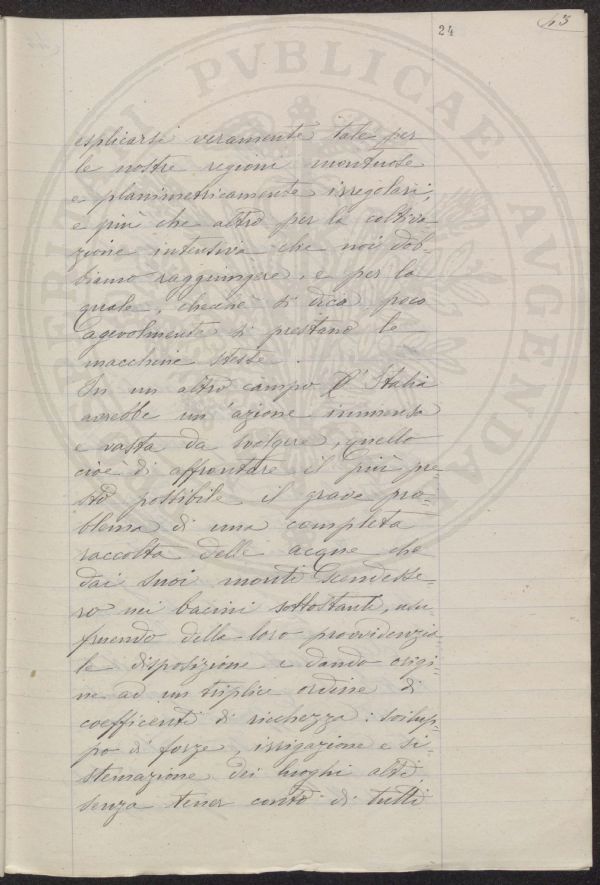 24
43
esplicarsi veramente tale per
le nostre regioni montuose
e planimetricamente irregolari;
e più che altro per la coltiva
zione intensiva che noi dob-
biamo raggiungere, e per la
quale, checchè si dica poco
agevolmente si prestano le
macchine stesse.
In un altro campo l'Italia
avrebbe un'azione immensa
e vasta da svolgere, quello
cioè di affrontare il più pre-
sto possibile il grave pro-
blema di una completa
raccolta delle acque che
dai suoi monti scendesse-
ro nei bacini sottostanti, usu
fruendo della loro provvidenzia-
le disposizione e dando origi-
ne ad un triplice ordine di
coefficenti di ricchezza: svilup-
po di forze, irrigazione e si-
stemazione dei luoghi alti
senza tener conto di tutti
PVBLICAE AVGENDAE